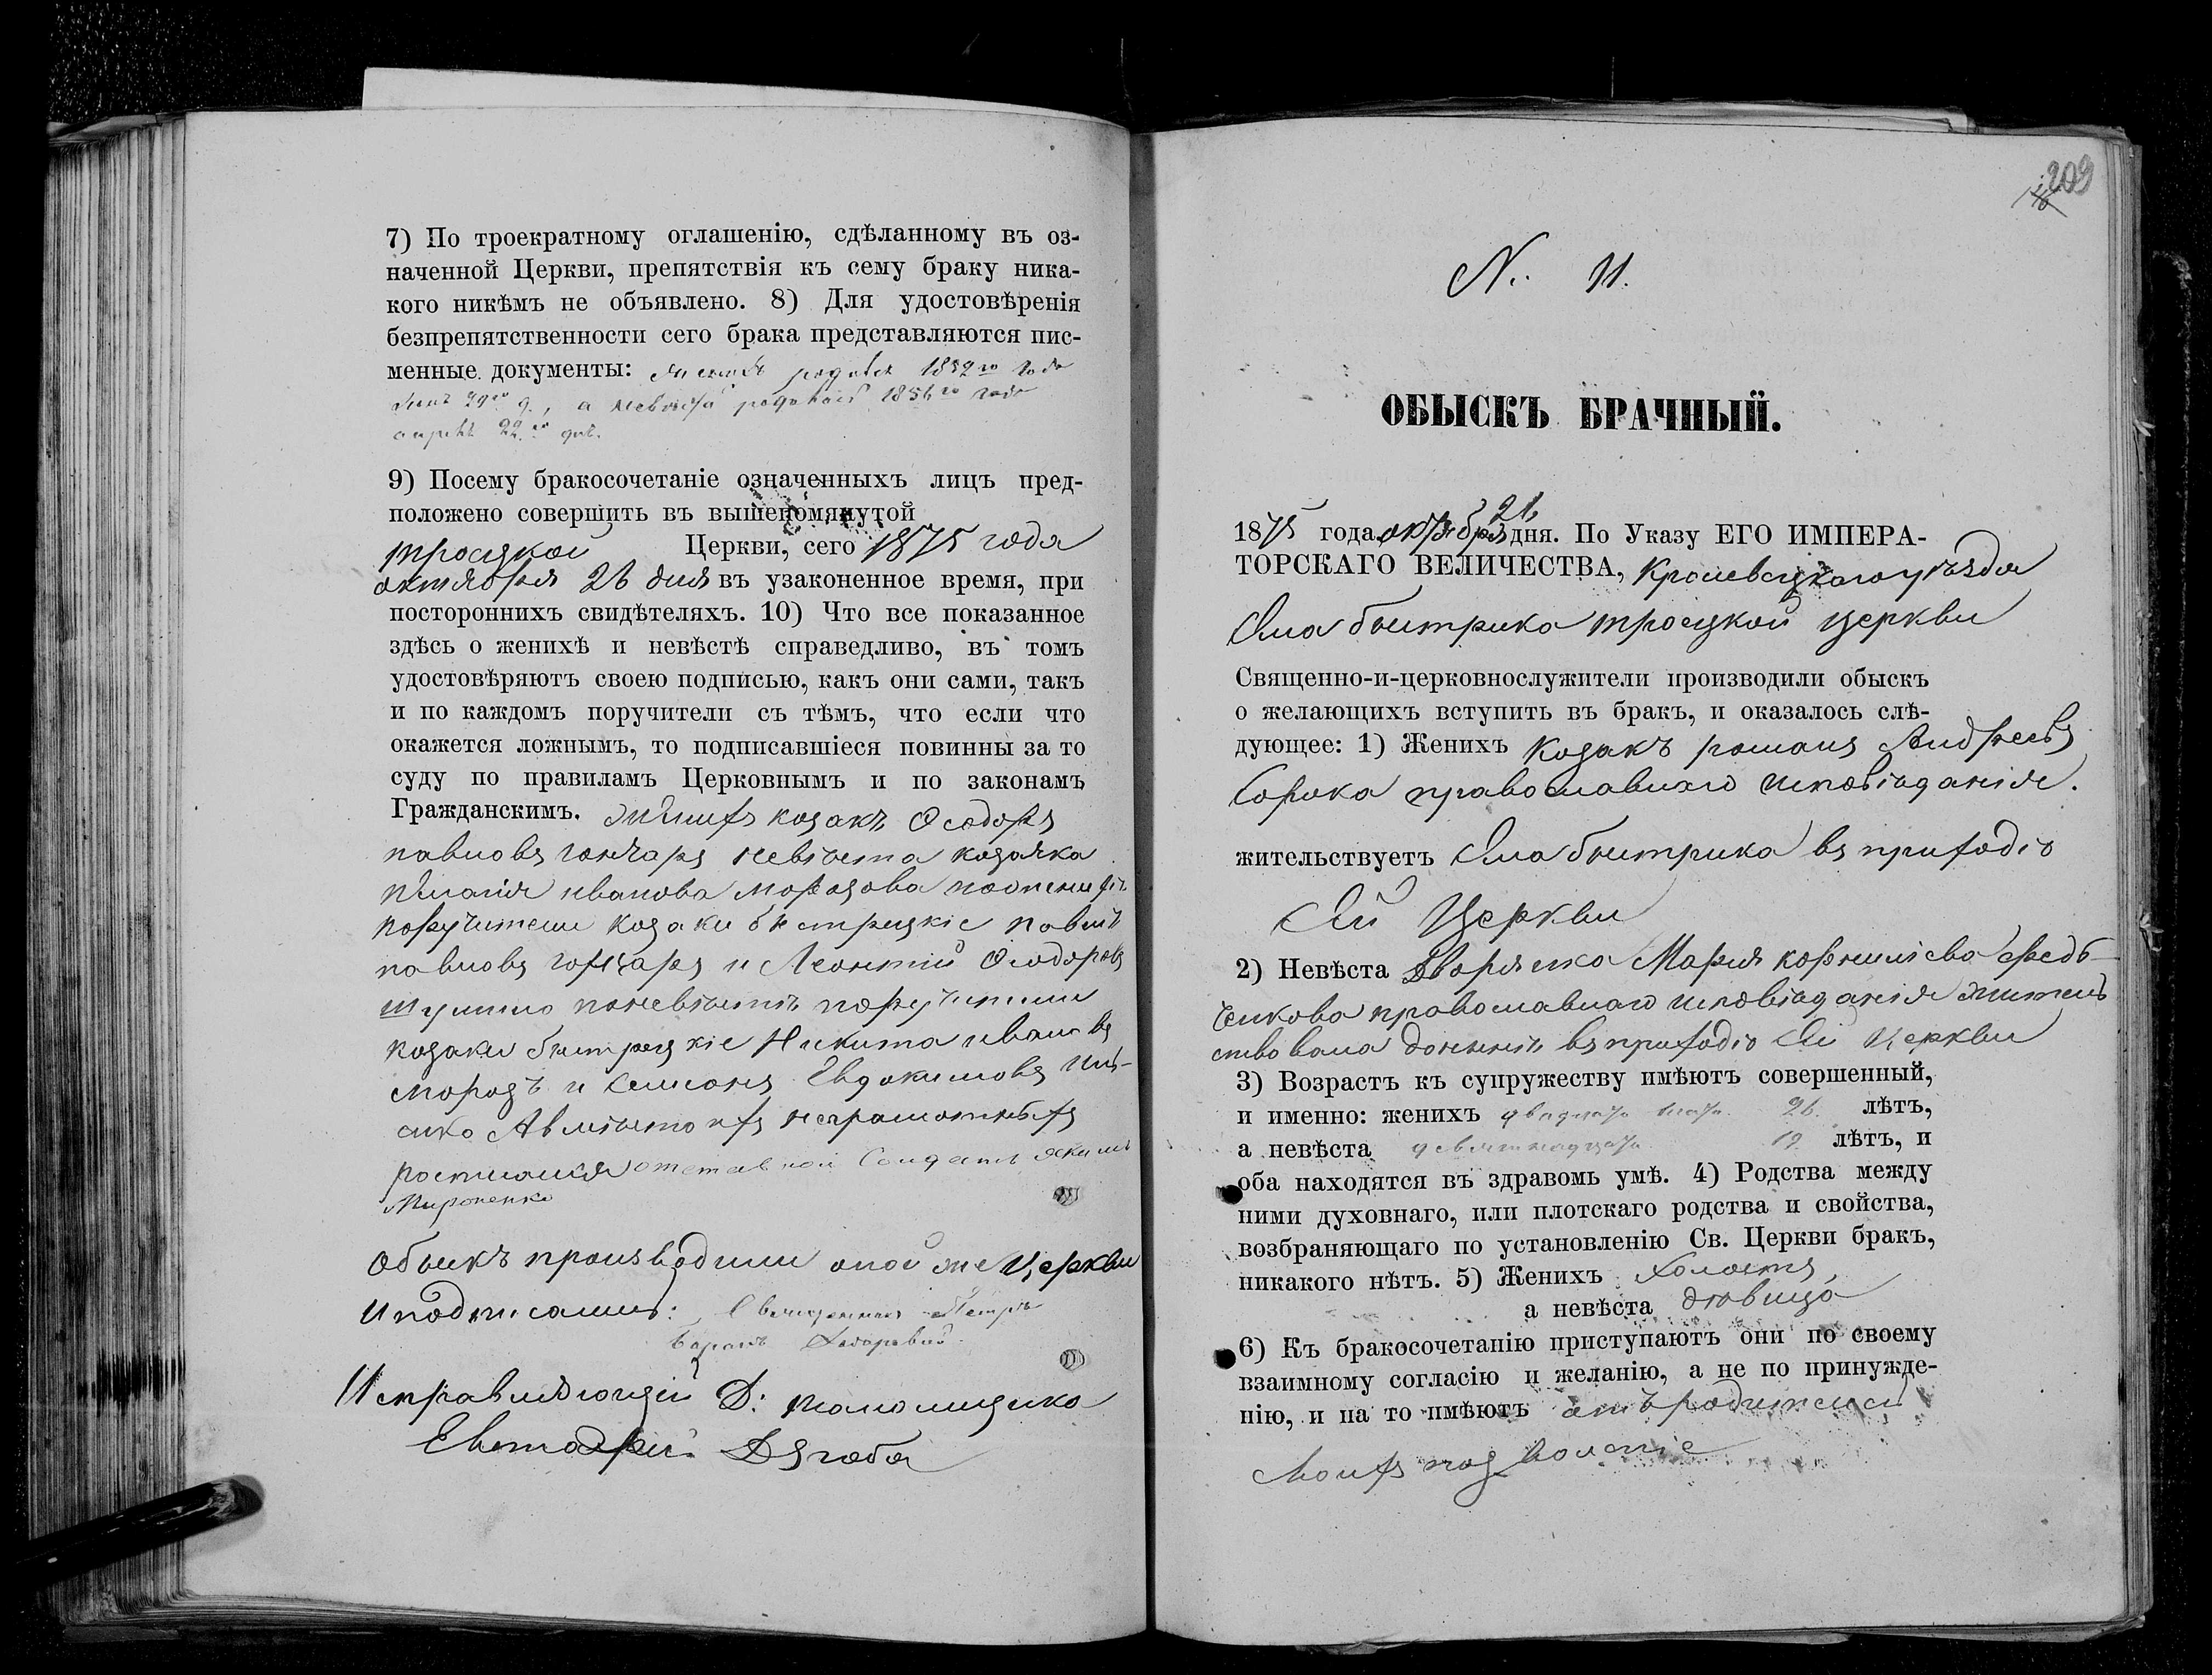 7) По троекратному оглашенію, сдѣланному въ оз-
наченной Церкви, препятствія къ сему браку ника-
кого никѣмъ не объявлено. 8) Для удостовѣренія
безпрепятственности сего брака представляются пис-
менные документы: женихъ родился 1852го года
29го д., а невѣста родилась 1856го года
апрѣля 22го дня.
9) Посему бракосочетаніе означенныхъ лицъ пред-
положено совершить въ вышепомянутой
троицкой Церкви, сего 1875 года
октября 26 дня въ узаконенное время, при
постороннихъ свидѣтеляхъ. 10) Что все показанное
здѣсь о женихѣ и невѣстѣ справедливо, въ томъ
удостовѣряютъ своею подписью, какъ они сами, такъ
и по каждомъ поручители съ тѣмъ, что если что
окажется ложнымъ, то подписавшіеся повинны за то
суду по правиламъ Церковнымъ и по законамъ
Гражданскимъ. женихъ козакъ Ѳеодоръ
павловъ гончаръ невѣста козачка
пилагія иванова морозова по женихѣ
поручители козаки быстрицкіе павелъ
павловъ гончаръ и Леонтій Ѳеодоровъ
шумило по невѣстѣ поручители
козаки быстрицкіе Никита ивановъ
морозъ и Симеонъ Евдокимовъ
а вмѣсто ихъ неграмотныхъ
росписался отставной Солдатъ якимъ
Мироненко
Обыскъ производили оной же Церкви
И подписались: Священникъ Петръ
Исправляющій Д: псаломщика
Евстафій Дзюба
209
N. 11.
ОБЫСКЪ БРАЧНЫЙ.
1875 года октября 26 дня. По Указу ЕГО ИМПЕРА-
ТОРСКАГО ВЕЛИЧЕСТВА, Кролевецкаго уѣзда
Села быстрика троицкой церкви
Священно-и-церковнослужители производили обыскъ
о желающихъ вступить въ бракъ, и оказалось слѣ-
дующее: 1) Женихъ козакъ романъ Андреевъ
Сорока православнаго исповѣданія.
жительствуетъ Села быстрика въ приходѣ
Сей Церкви
2) Невѣста Дворянка Марія корниліева Федь-
ченкова православнаго исповѣданія жител
ствовала донынѣ въ приходѣ Сей Церкви
3) Возрастъ къ супружеству имѣютъ совершенный,
и именно: женихъ двадцать шесть 26. лѣтъ,
а невѣста девятнадцать 19 лѣтъ, и
оба находятся въ здравомъ умѣ. 4) Родства между
ними духовнаго, или плотскаго родства и свойства,
возбраняющаго по установленію Св. Церкви бракъ,
никакого нѣтъ. 5) Женихъ холостъ,
а невѣста дѣвица
6) Къ бракосочетанію приступаютъ они по своему
взаимному согласію и желанію, а не по принужде-
нію, и на то имѣютъ отъ родителей
своихъ позволеніе